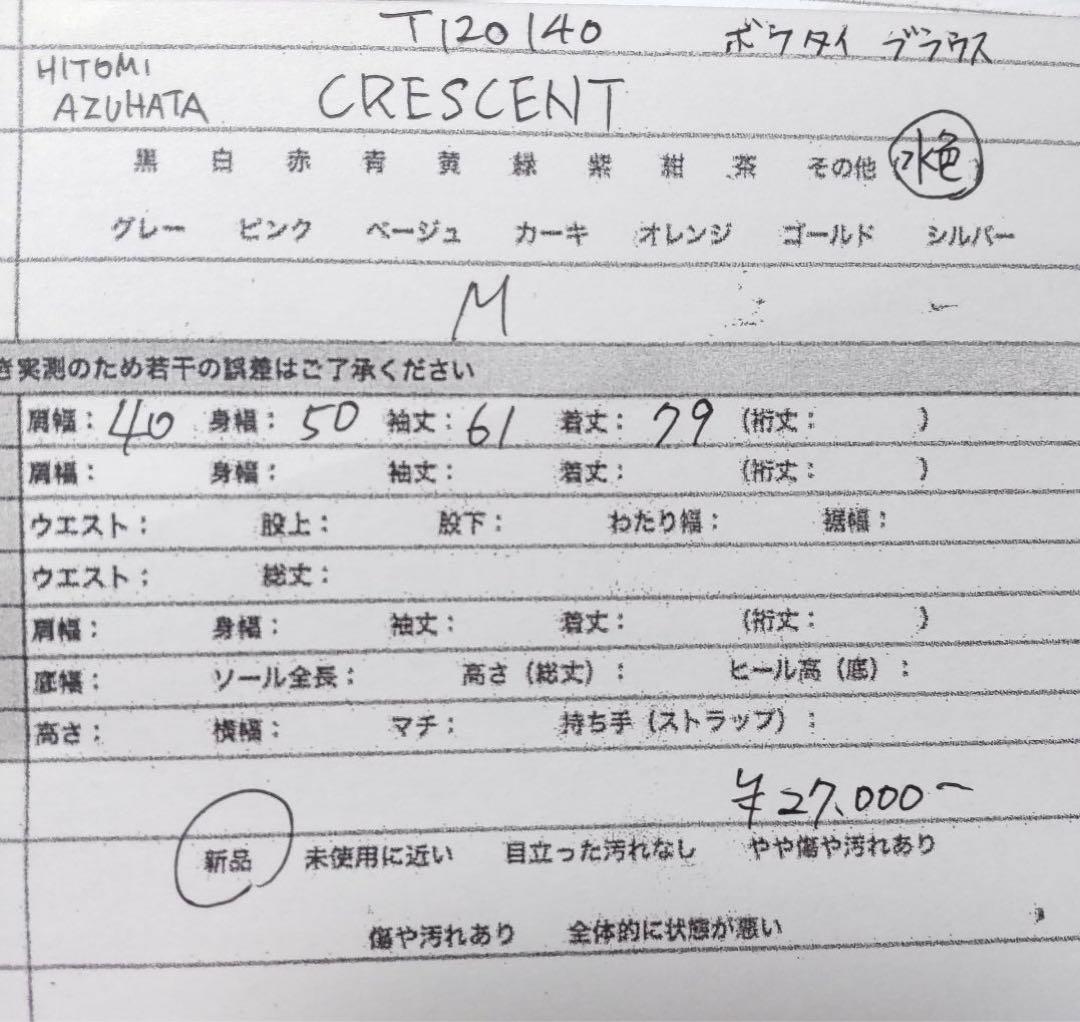 T120140 ボウタイ ブラウス
HITOMI
AZUHATA CRESCENT
黒 白 赤 青 黄 緑 紫 紺 茶 その他 (水色)
グレー ピンク ベージュ カーキ オレンジ ゴールド シルバー
M
き実測のため若干の誤差はご了承ください
肩幅：40 身幅：50 袖丈：61 着丈：79 (裄丈： )
肩幅： 身幅： 袖丈： 着丈： (裄丈： )
ウエスト： 股上： 股下： わたり幅： 裾幅：
ウエスト： 総丈：
肩幅： 身幅： 袖丈： 着丈： (裄丈： )
底幅： ソール全長： 高さ（総丈）： ヒール高（底）：
高さ： 横幅： マチ： 持ち手（ストラップ）：
¥27,000-
新品 未使用に近い 目立った汚れなし やや傷や汚れあり
傷や汚れあり 全体的に状態が悪い